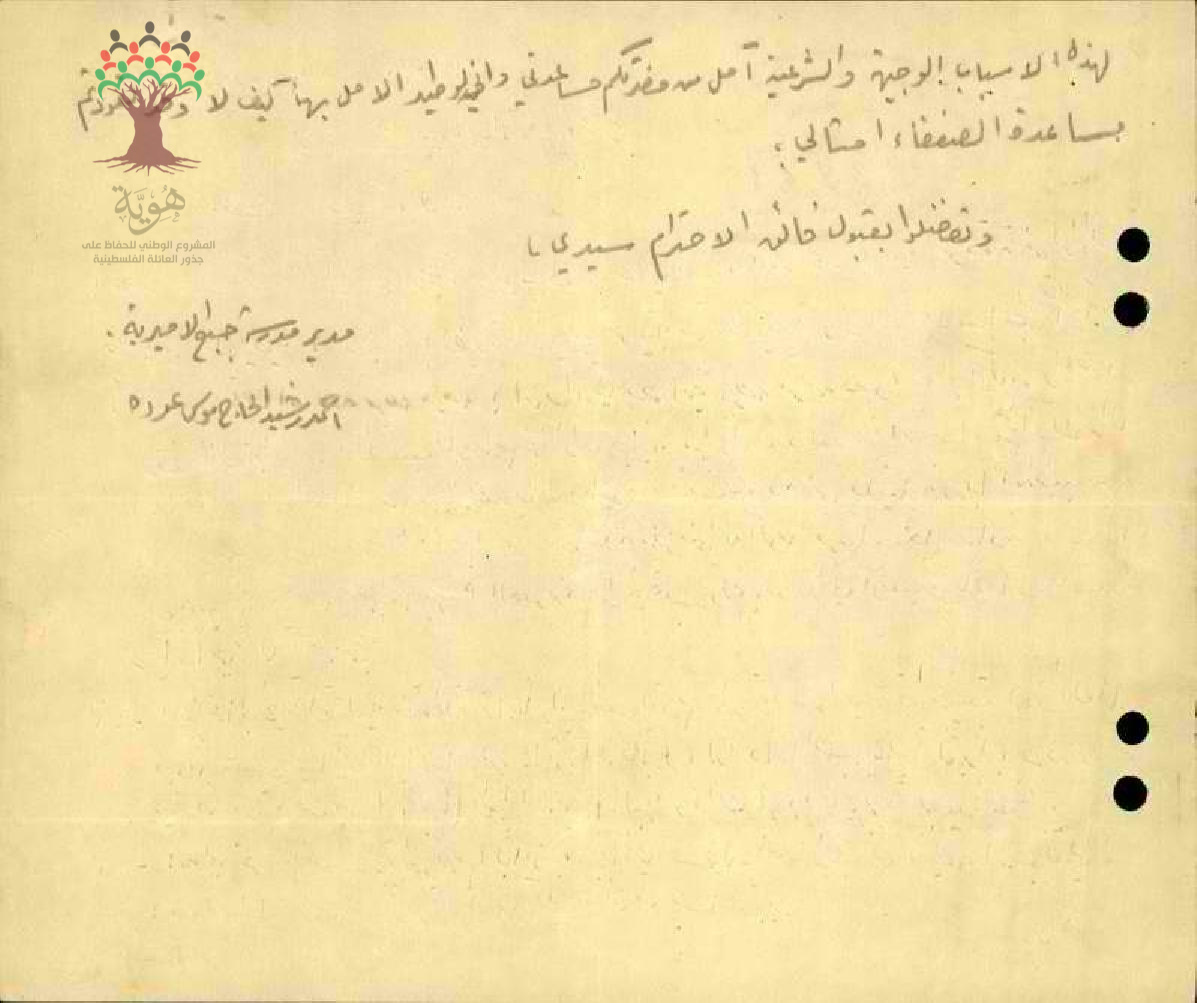 لهذه الاسباب الوجيهة والشرعية آمل من حضرتكم مساعدتي واني لوطيد الامل بها كيف لا وقد
بمساعدة الضعفاء امثالي ؛
وتفضلوا بقبول فائق الاحترام سيدي ،،
مدير مدرسة جبع الاميرية .
احمد رشيد الحاج موسى عوده
هُوِيَّة
المشروع الوطني للحفاظ على
جذور العائلة الفلسطينية